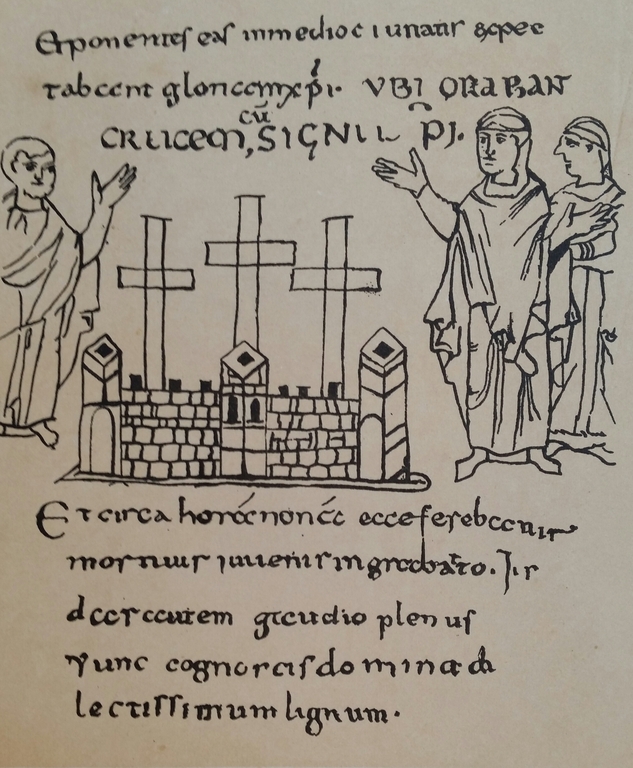 Et ponentes eas inmedio ciuitatis expec
tabant gloriam xpi. UBI ORABANT
cū
CRUCEM, SIGNU PI.
Et circa horā nonā ecce ferebatur
mortuus iuuenis in grabato. Iu
das autem gaudio plenus
nunc cognoscis domina di
lectissimum lignum.